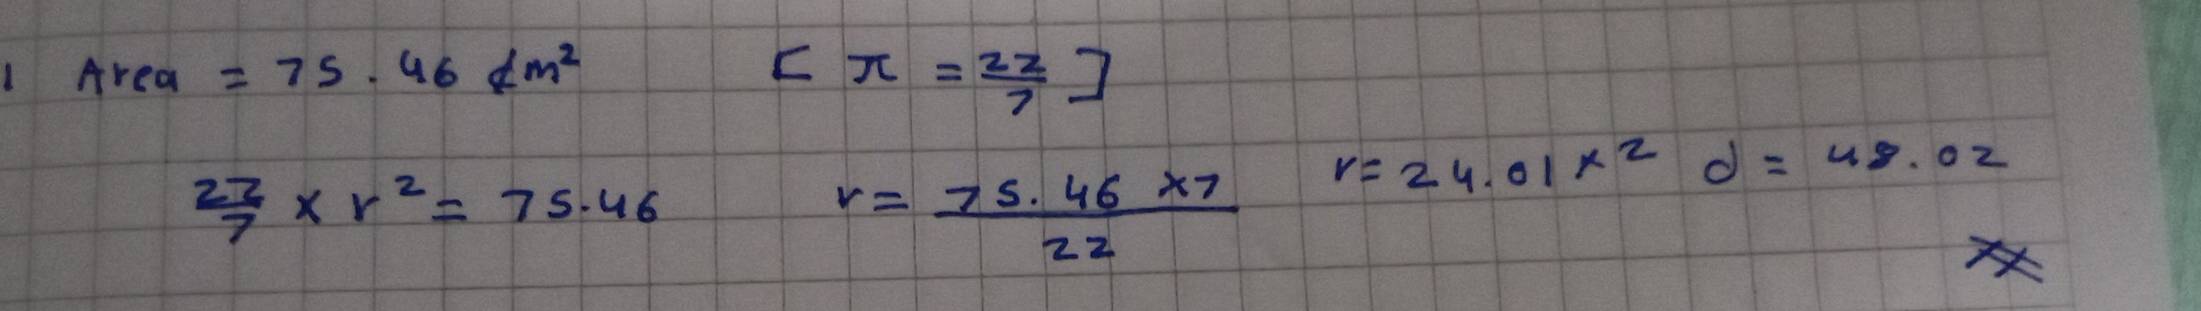 1 Area = 75.46 dm² [ π = 22/7 ]
22/7 × r² = 75.46 r = 75.46 ×7/22 r= 24.01 × 2 d = 48.02